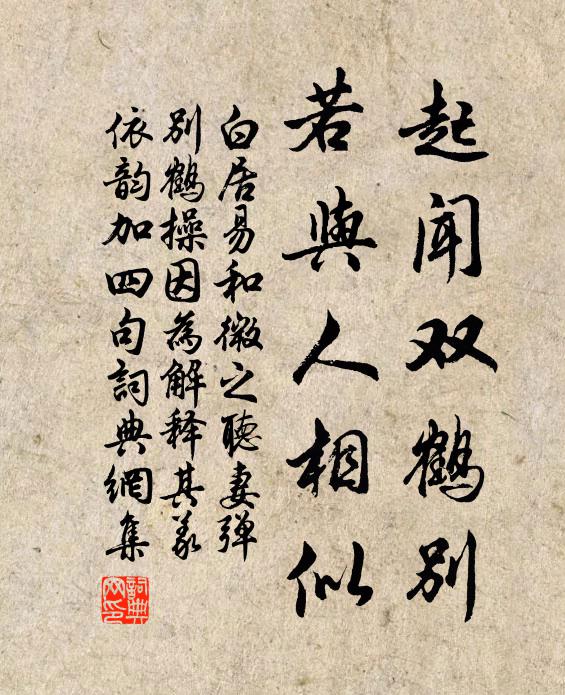 起闻双鹤别
若與人相似
白居易和微之聽妻弹
别鹤操因為解释其义
依韵加四句詞典網集
詞典